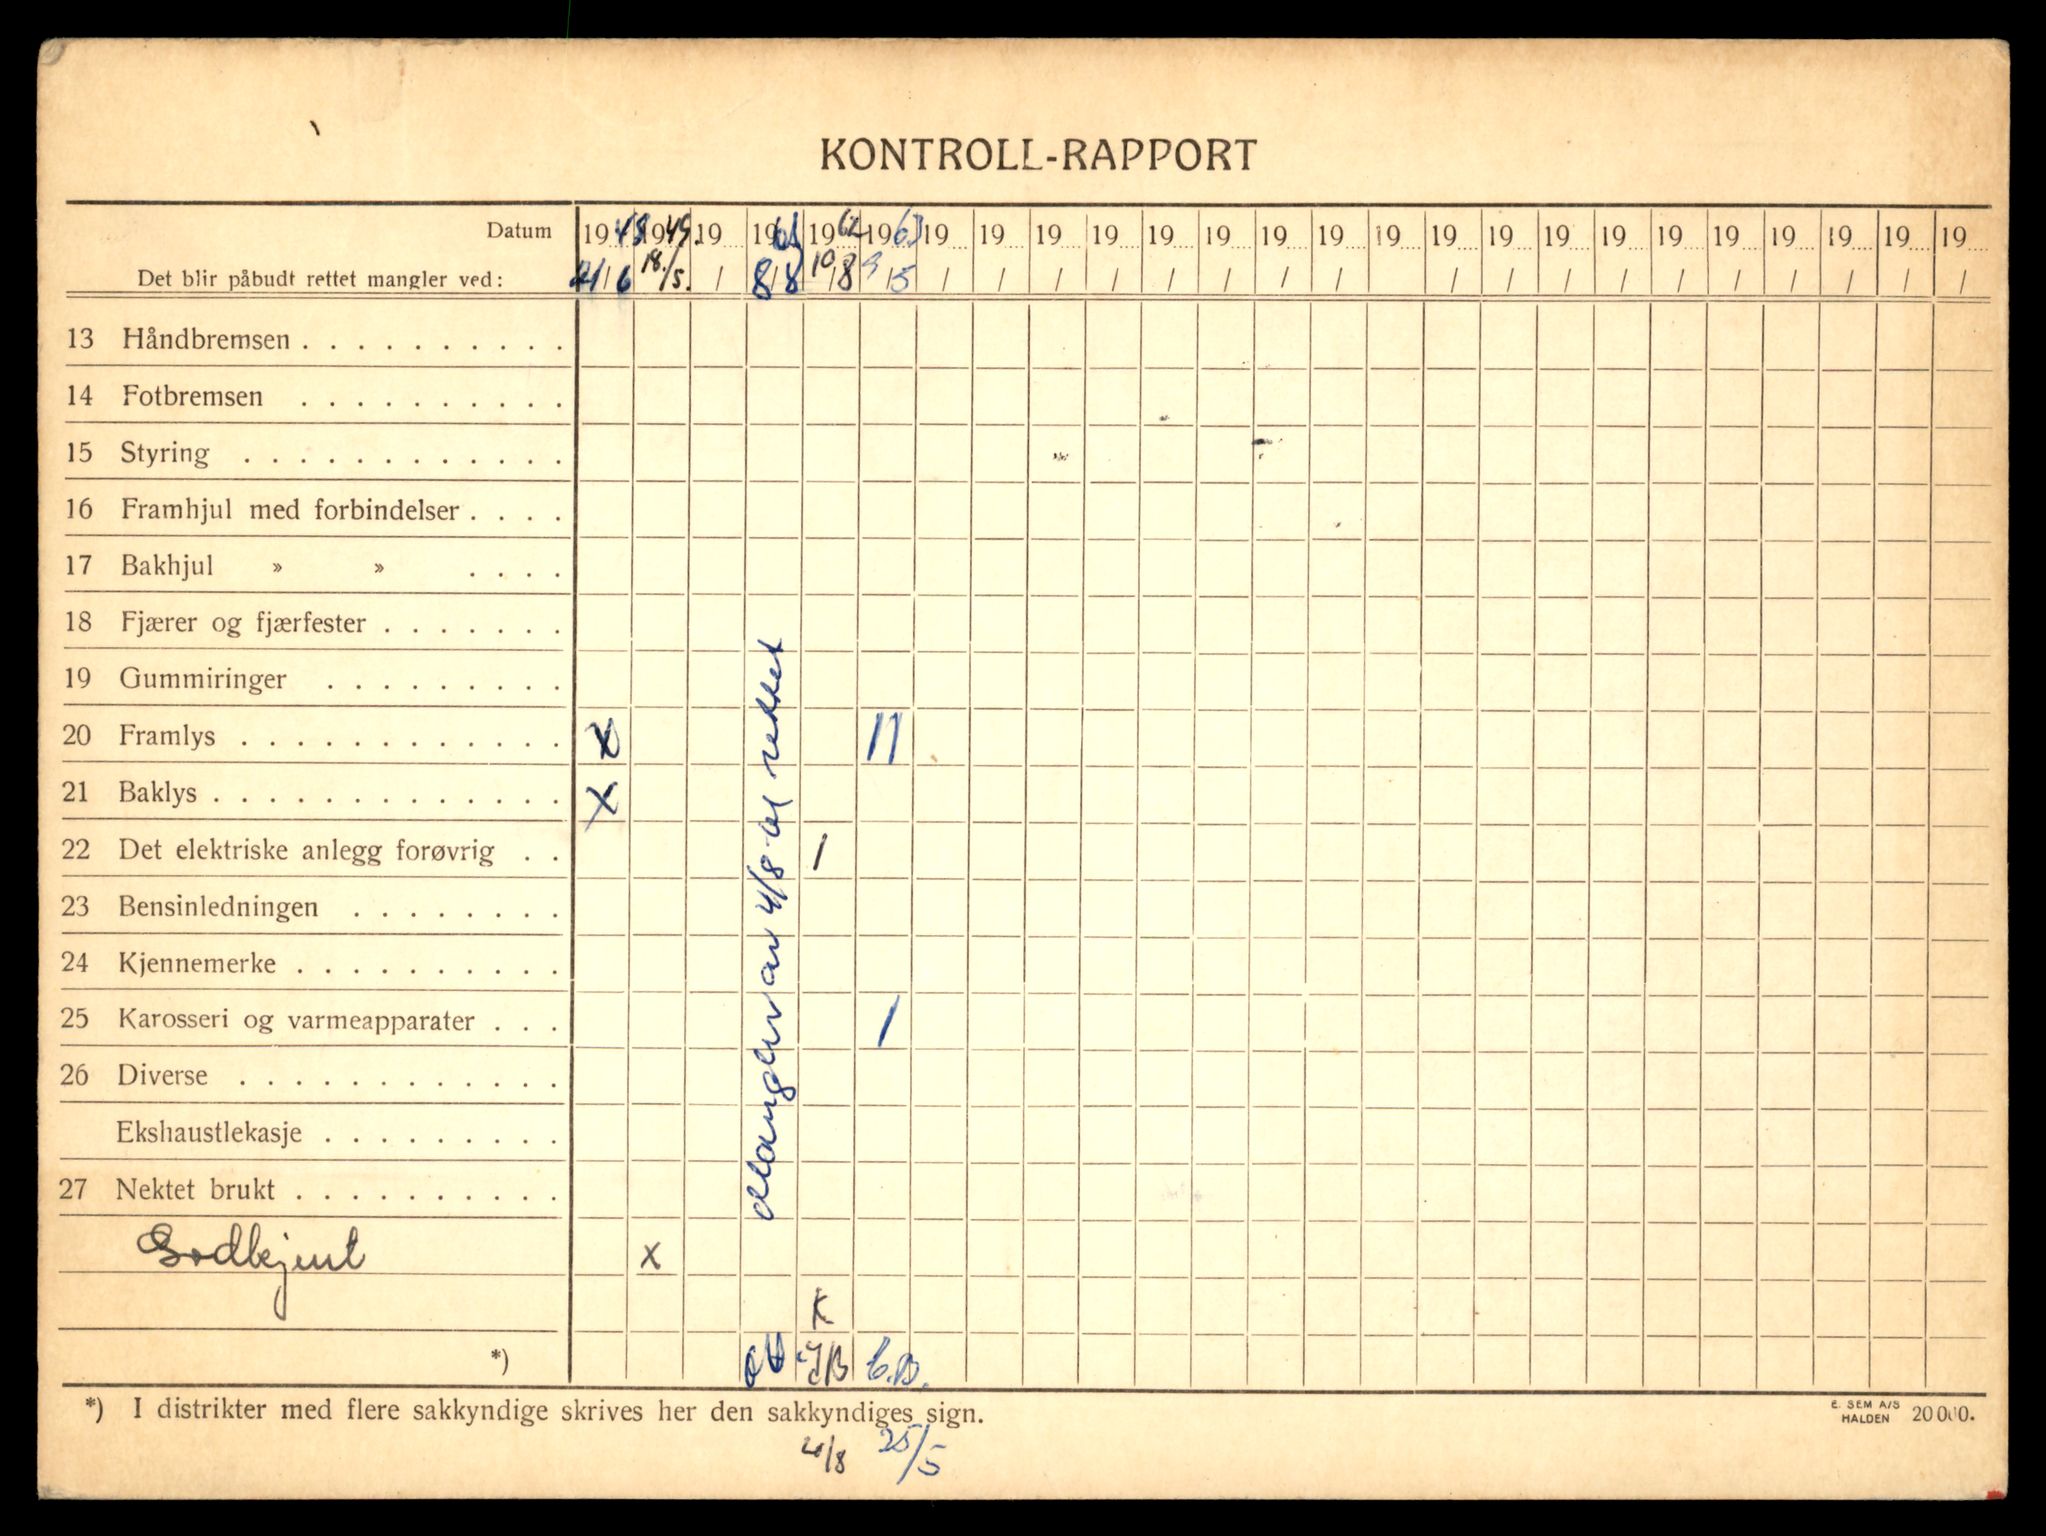 KONTROLL-RAPPORT
Datum 1948 1949. 19 1961 1962 1963 19 19 19 19 19 19 19 19 19 19 19 19 19 19 19 19 19 19 19
Det blir påbudt rettet mangler ved: 21/6 18./5. / 8/8 10/8 9/5 / / / / / / / / / / / / / / / / /
13 Håndbremsen
14 Fotbremsen
15 Styring
16 Framhjul med forbindelser
17 Bakhjul » »
18 Fjærer og fjærfester
19 Gummiringer
20 Framlys x 11
21 Baklys x
22 Det elektriske anlegg forøvrig 1
23 Bensinledningen
24 Kjennemerke
25 Karosseri og varmeapparater 1
26 Diverse
Ekshaustlekasje
27 Nektet brukt
Mangler av 4/8-61 rettet
Godkjent x
K
*) JB C.B.
*) I distrikter med flere sakkyndige skrives her den sakkyndiges sign.
E. SEM A/S
HALDEN 20000.
21/8 25/5